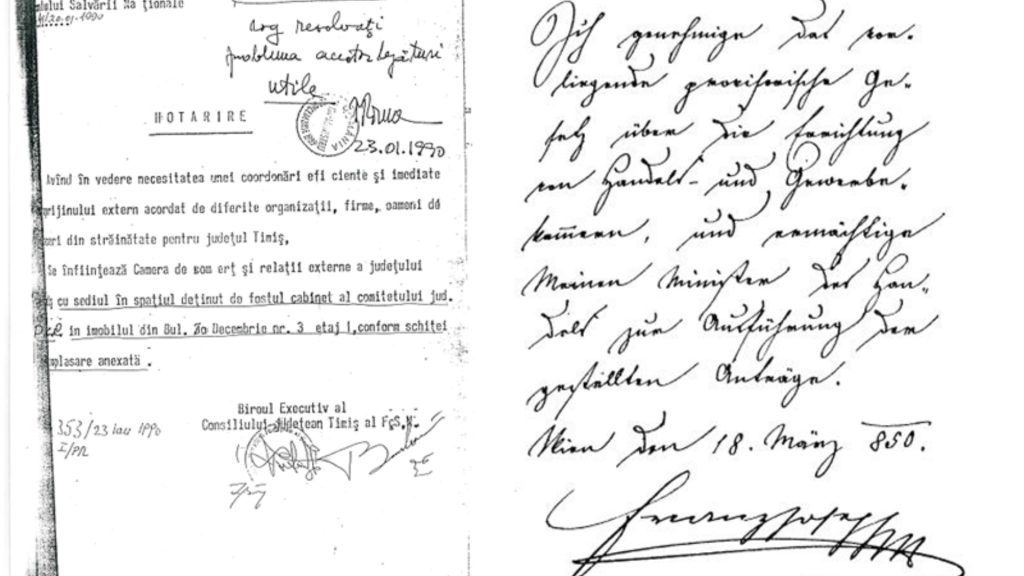 Salvării Na ţionale
20.01.1990
rog rezolvaţi
problema acestor legături
utile
HOTARIRE
23.01.1990
Avînd în vedere necesitatea unei coordonări efi ciente şi imediate
rijinului extern acordat de diferite organizaţii, firme, oameni de
eri din străinătate pentru judeţul Timiş,
Se înfiinţează Camera de com erţ şi relaţii externe a judeţului
cu sediul în spaţiul deţinut de fostul cabinet al comitetului jud.
P.C.R. in imobilul din Bul. 3o Decembrie nr. 3 etaj I,conform schiţei
mplasare anexată .
Biroul Executiv al
Consiliului Judeţean Timiş al F.S.N.
353/23 ian 1990
I/PR
Ich genehmige das vor-
liegende provisorische Ge-
setz über die Errichtung
von Handels- und Gewerbe-
kam̅ern, und ermächtige
Meinen Minister des Han-
dels zur Ausführung der
gestellten Anträge.
Wien den 18. März 850.
Franz Joseph